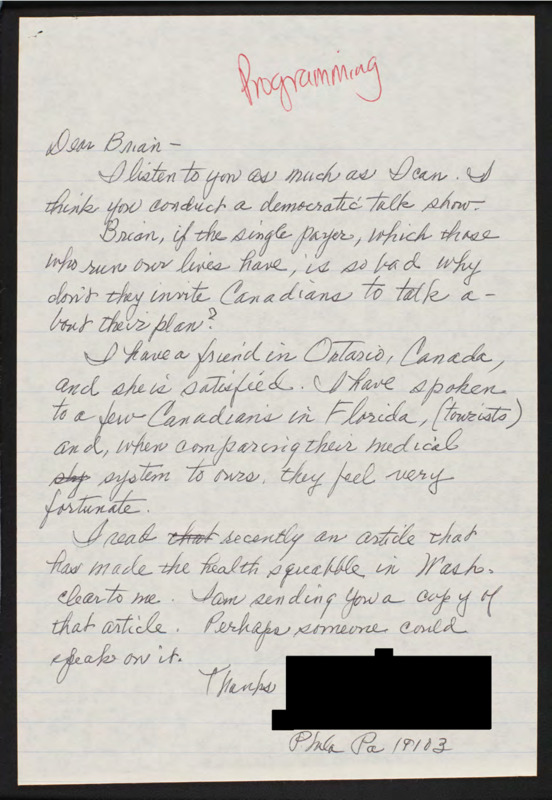 Programming
Dear Brian -
I listen to you as much as I can. I
think you conduct a democratic talk show.
Brian, if the single payer, which those
who run our lives have, is so bad why
don't they invite Canadians to talk a-
bout their plan?
I have a friend in Ontario, Canada,
and she is satisfied. I have spoken
to a few Canadians in Florida, (tourists)
and, when comparing their medical
sys system to ours, they feel very
fortunate.
I read that recently an article that
has made the health squabble in Wash.
clear to me. I am sending you a copy of
that article. Perhaps someone could
speak on it.
Thanks
Phila Pa 19103